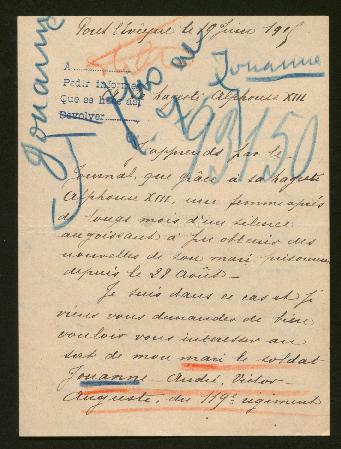 Pont l'évêque le 19 Juin 1915
Jouanne
Jouanne
A
Pedir informes
Que se hace así
Devolver
93150
Sa Majesté Alphonse XIII
J'apprends par le
Journal, que grâce à sa Majesté
Alphonse XIII, une femme après
de longs mois d'un silence
angoissant a pu obtenir des
nouvelles de son mari prisonnier
depuis le 22 Août -
Je suis dans ce cas et je
viens vous demander de bien
vouloir vous intéresser au
sort de mon mari le soldat
Jouanne - André, Victor -
Auguste, du 119e régiment